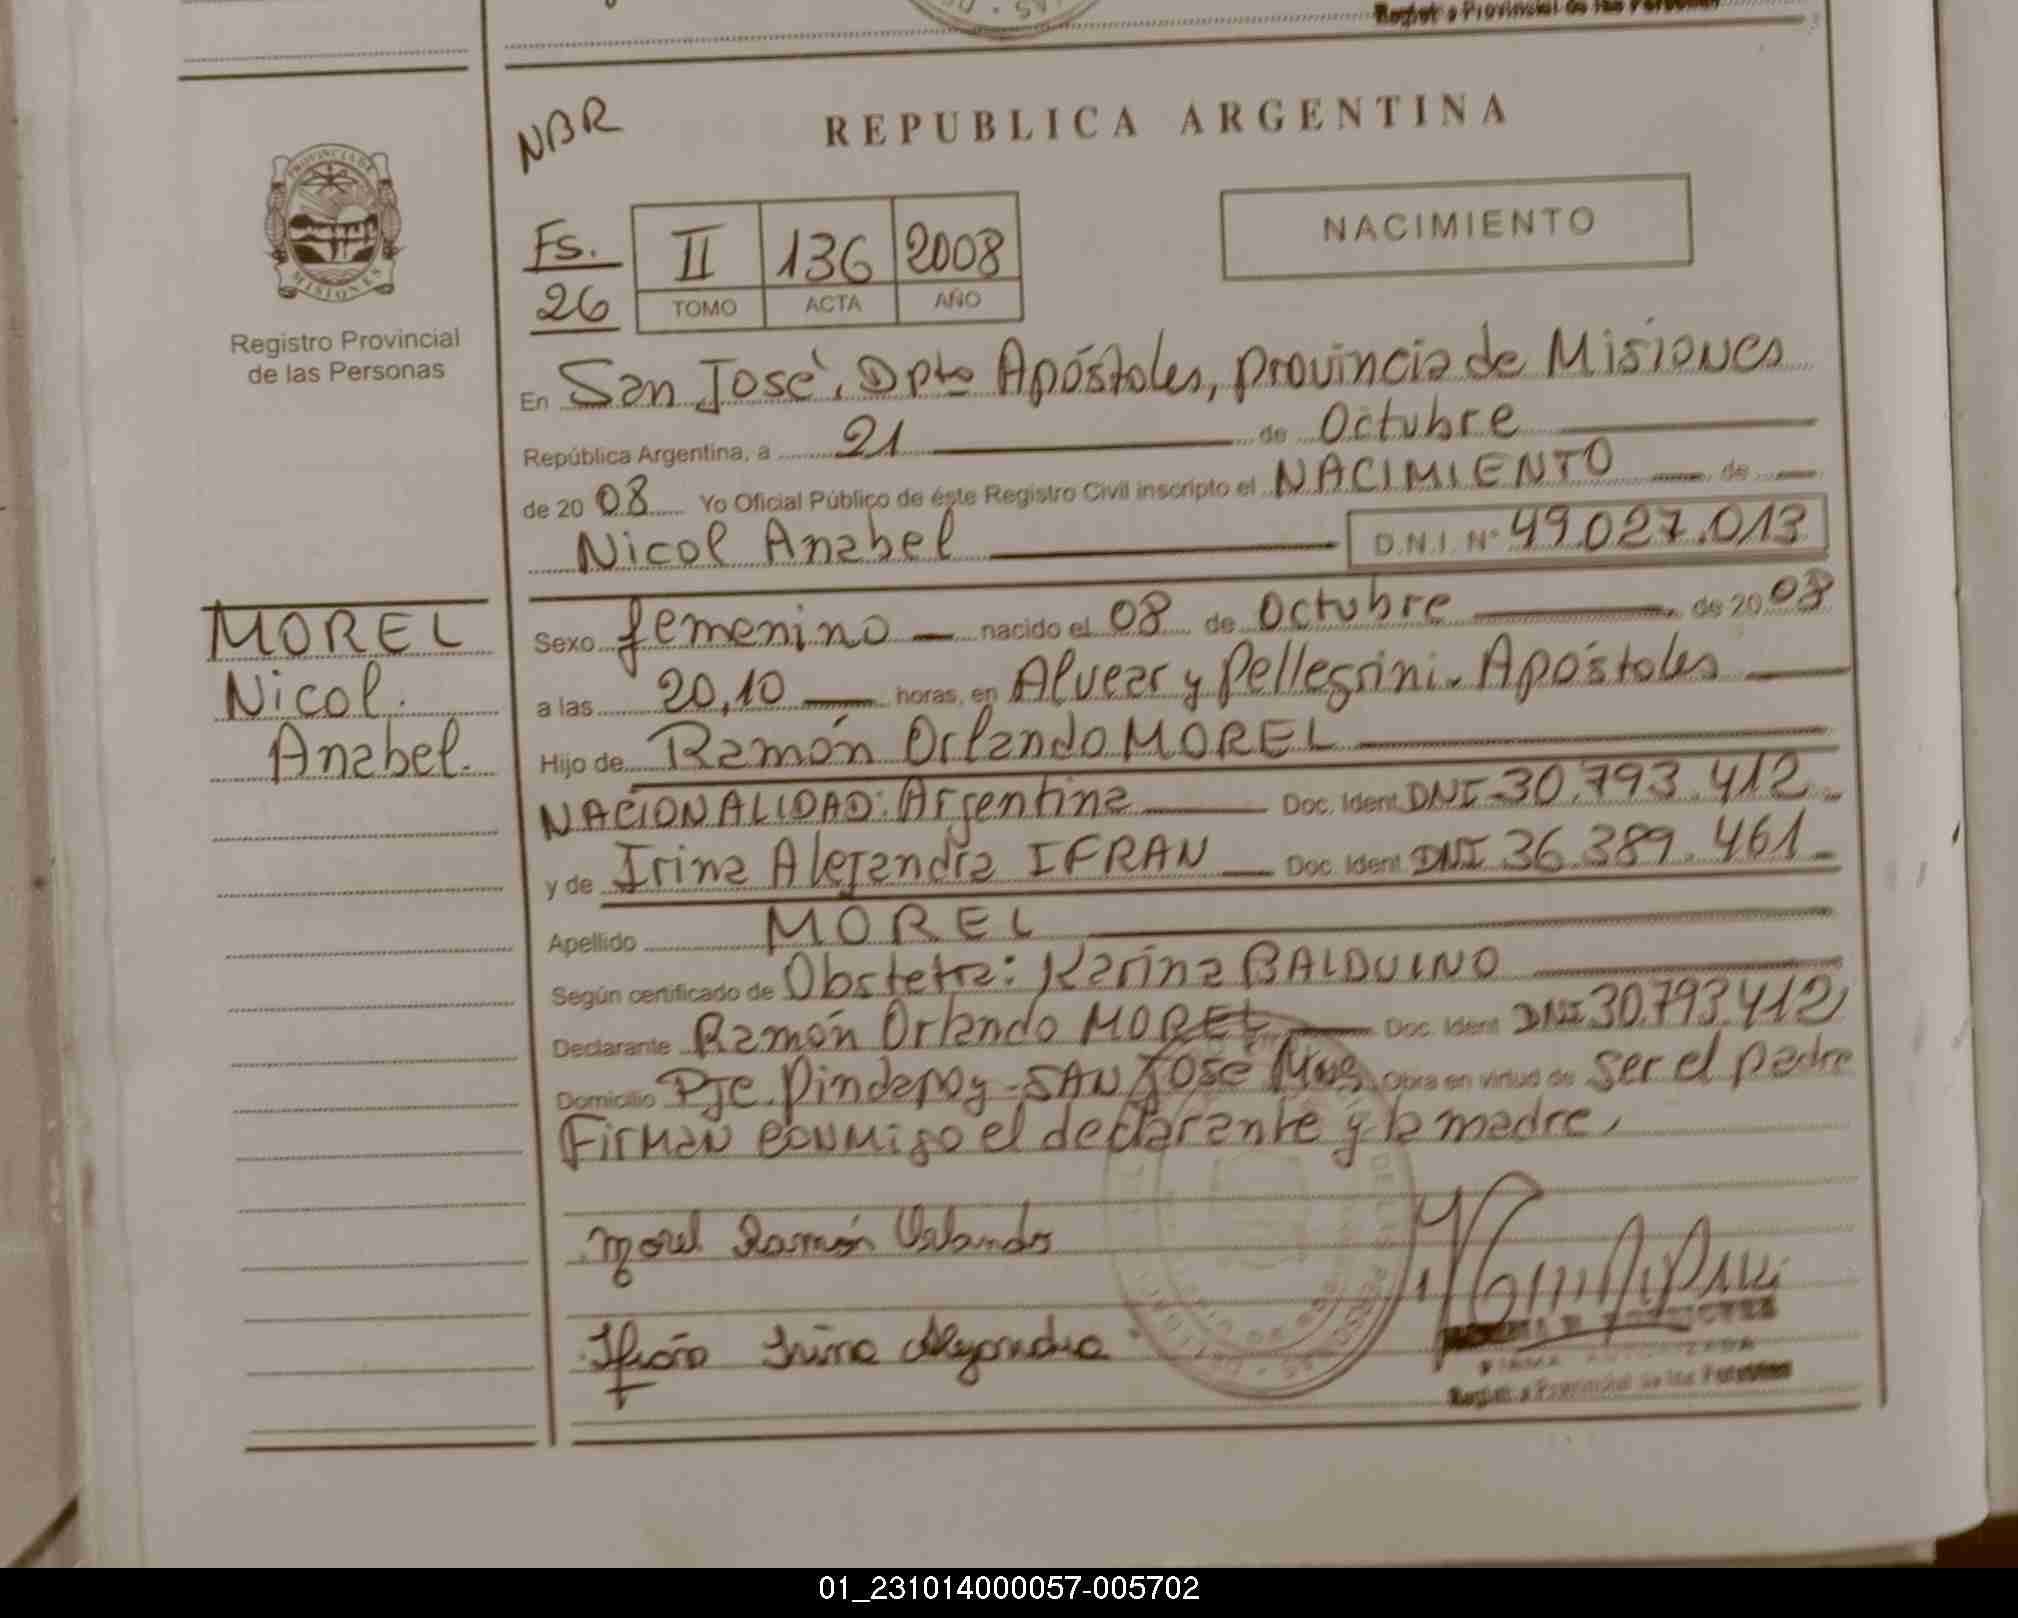 Registro Provincial de las Personas
REPUBLICA ARGENTINA
NBR
PROVINCIA DE
MISIONES
Registro Provincial
de las Personas
Fs.
26
II 136 2008
TOMO ACTA AÑO
NACIMIENTO
En San José, Dpto Apóstoles, provincia de Misiones
República Argentina, a 21 de Octubre
de 2008 Yo Oficial Público de éste Registro Civil inscripto el NACIMIENTO de
Nicol Anabel D.N.I. Nº 49.027.013
MOREL
Nicol.
Anabel.
Sexo femenino nacido el 08 de Octubre de 2008
a las 20,10 horas, en Alvear y Pellegrini. Apóstoles
Hijo de Ramón Orlando MOREL
NACIONALIDAD: Argentina Doc. Ident. DNI 30.793.412
y de Irina Alejandra IFRAN Doc. Ident DNI 36.389.461
Apellido MOREL
Según certificado de Obstetra: Karina BALDUINO
Declarante Ramón Orlando MOREL Doc. Ident DNI 30.793.412
Domicilio Pje. Pindapoy - SAN José Mnes Obra en virtud de ser el padre
Firman conmigo el declarante y la madre,
Morel Ramón Orlando
Ifrán Irina Alejandra
FIRMA AUTORIZADA
Registro Provincial de las Personas
01_231014000057-005702